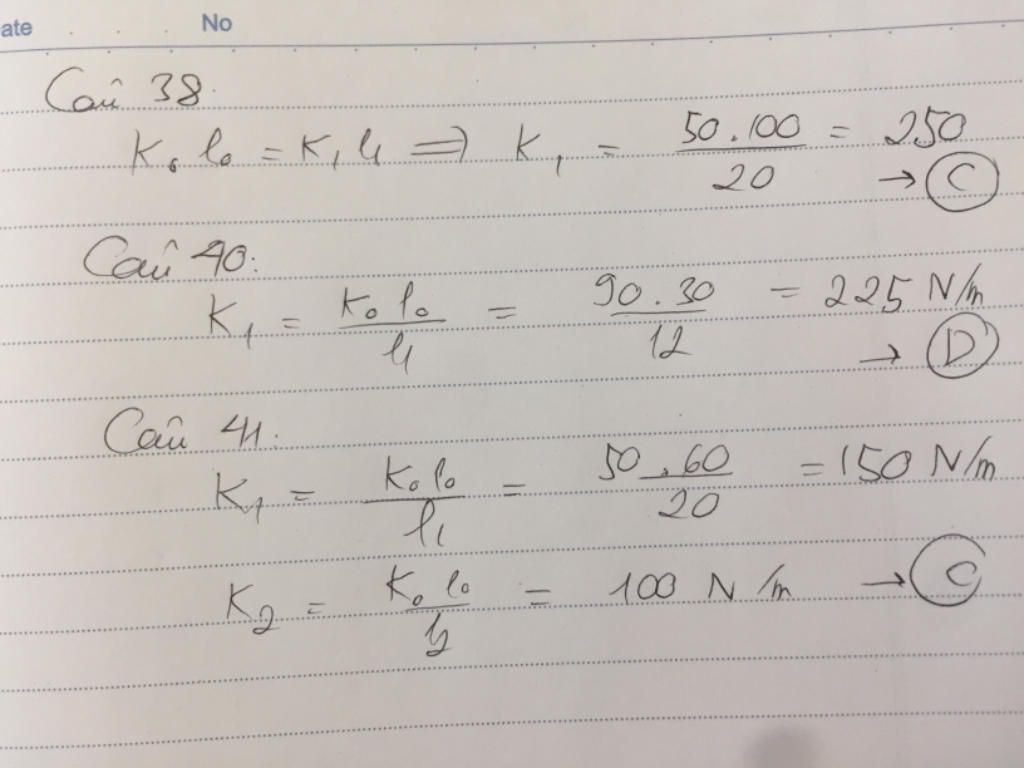 ate No
Câu 38.
K₀ l₀ = K₁ l₁ ⟹ K₁ = 50.100/20 = 250
→ C
Câu 40:
K₁ = K₀ l₀/l₁ = 90.30/12 = 225 N/m
→ D
Câu 41:
K₁ = K₀ l₀/l₁ = 50.60/20 = 150 N/m
K₂ = K₀ l₀/l₂ = 100 N/m → C